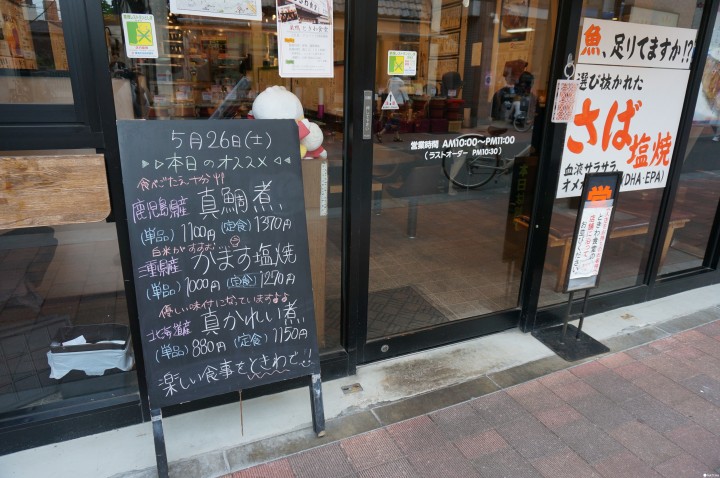 5月26日(土)
本日のオススメ
食べごたえ十分!!
鹿児島産 真鯛煮
(単品)1100円 (定食)1370円
白米がすすむ
三重県産 かます塩焼
(単品)1000円 (定食)1270円
優しい味付になっていますよ
北海道産 真かれい煮
(単品)880円 (定食)1150円
楽しい食事をときわで!!
営業時間 AM10:00〜PM11:00
(ラストオーダー PM10:30)
魚、足りてますか!?
選び抜かれた
さば塩焼
血液サラサラ
(DHA·EPA)
ときわ食堂の